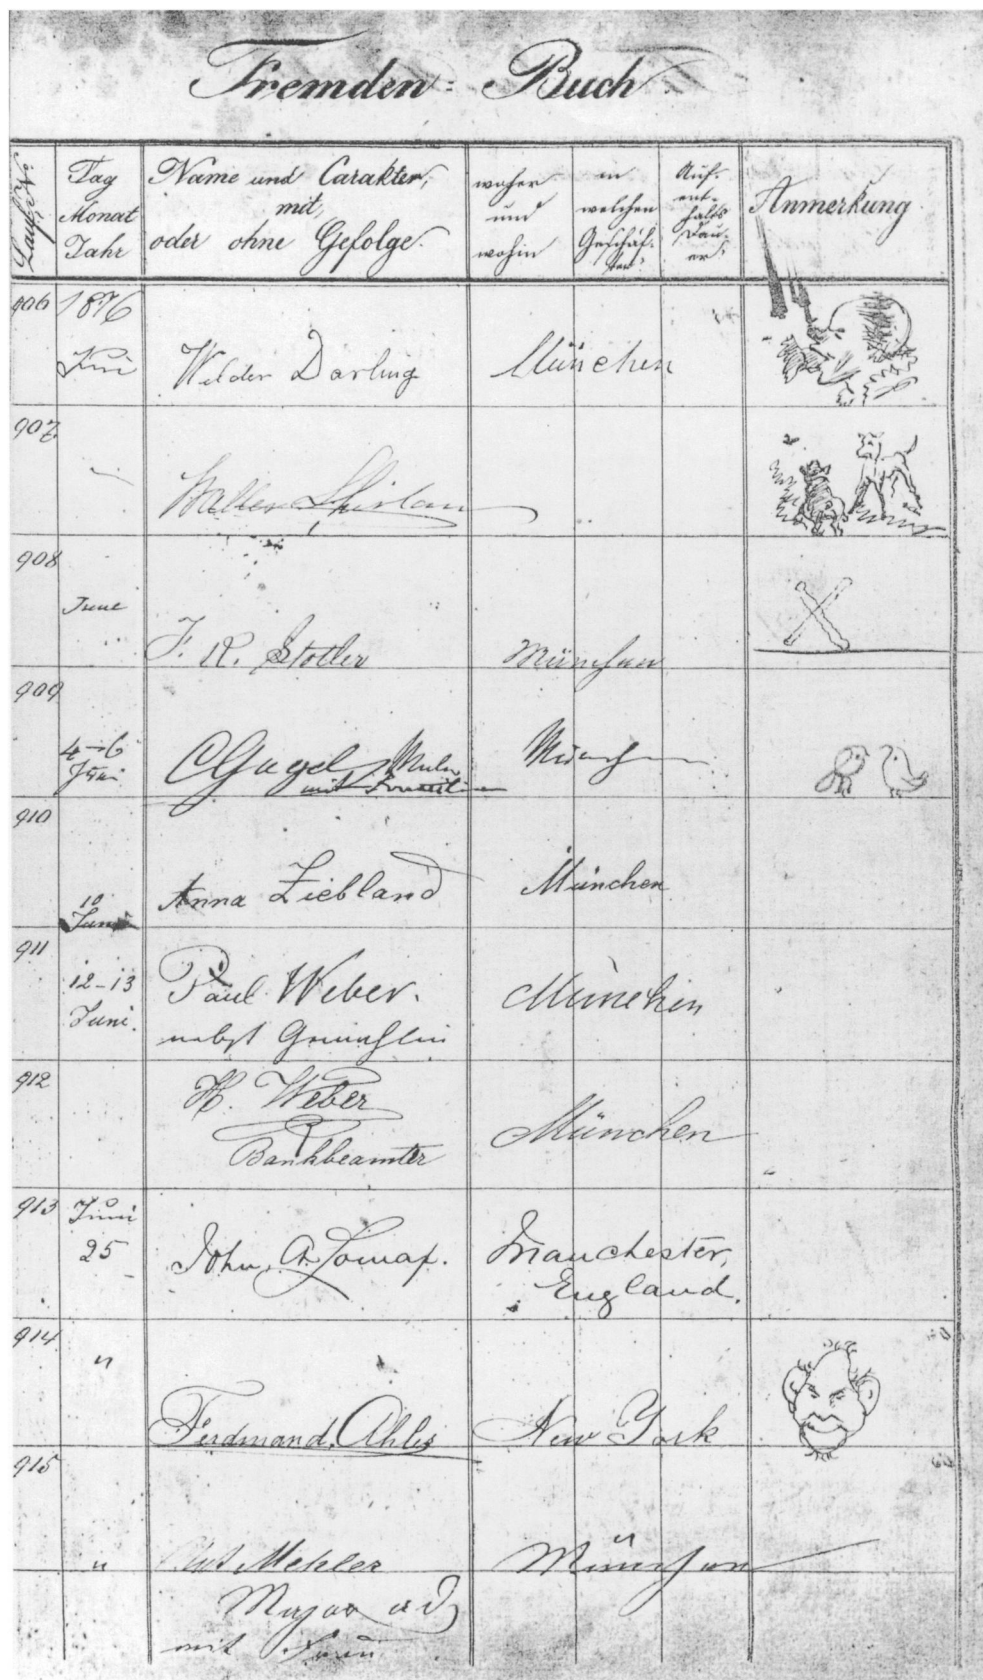 Fremden-Buch
Lauf. No.
Tag
Monat
Jahr
Name und Carakter,
mit,
oder ohne Gefolge.
woher
und
wohin
in
welchen
Geschäf-
ten
Auf-
ent-
halts
Dau-
er
Anmerkung
906 1876
Juni Wilder Darling München
907
Walter
908
June
F. R. Stotler München
909
4-6
Juni C Gagel Maler Münch
mit
910
10
Juni Anna Ziebland München
911
12-13
Juni. Paul Weber. München
nebst Gemahlin
912
H. Weber
Bankbeamter München
913 Juni
25 John A Lomax. Manchester,
England.
914
"
Ferdinand New York
915
" Mehler München
Major a D
mit Frau